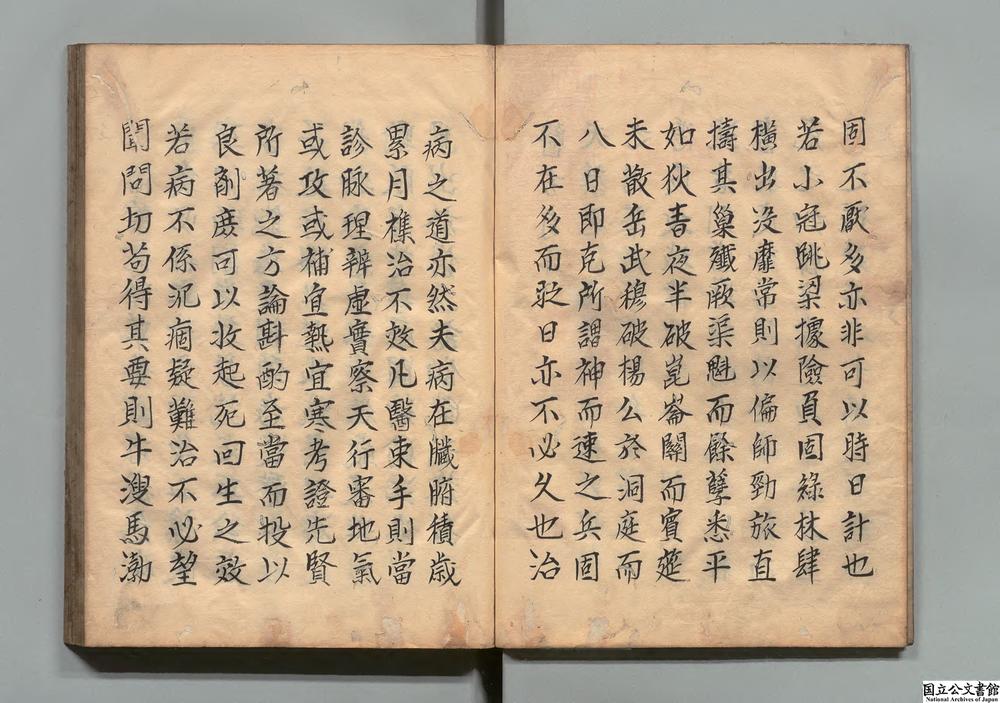 固不厭多亦非可以時日計也
若小冦跳梁據險負固綠林肆
橫出没靡常則以偏師勁旅直
擣其巢殲厥渠魁而餘孽悉平
如狄青夜半破崑崙關而賓筵
未散岳武穆破楊公於洞庭而
八日即克所謂神而速之兵固
不在多而歴日亦不必久也治
病之道亦然夫病在臟腑積歳
累月樵治不效凡醫束手則當
診脉理辨虛實察天行審地氣
或攻或補宜熱宜寒考證先賢
所著之方論斟酌至當而投以
良劑庶可以收起死回生之效
若病不係沉痼疑難治不必望
聞問切苟得其要則牛溲馬渤
国立公文書館
National Archives of Japan